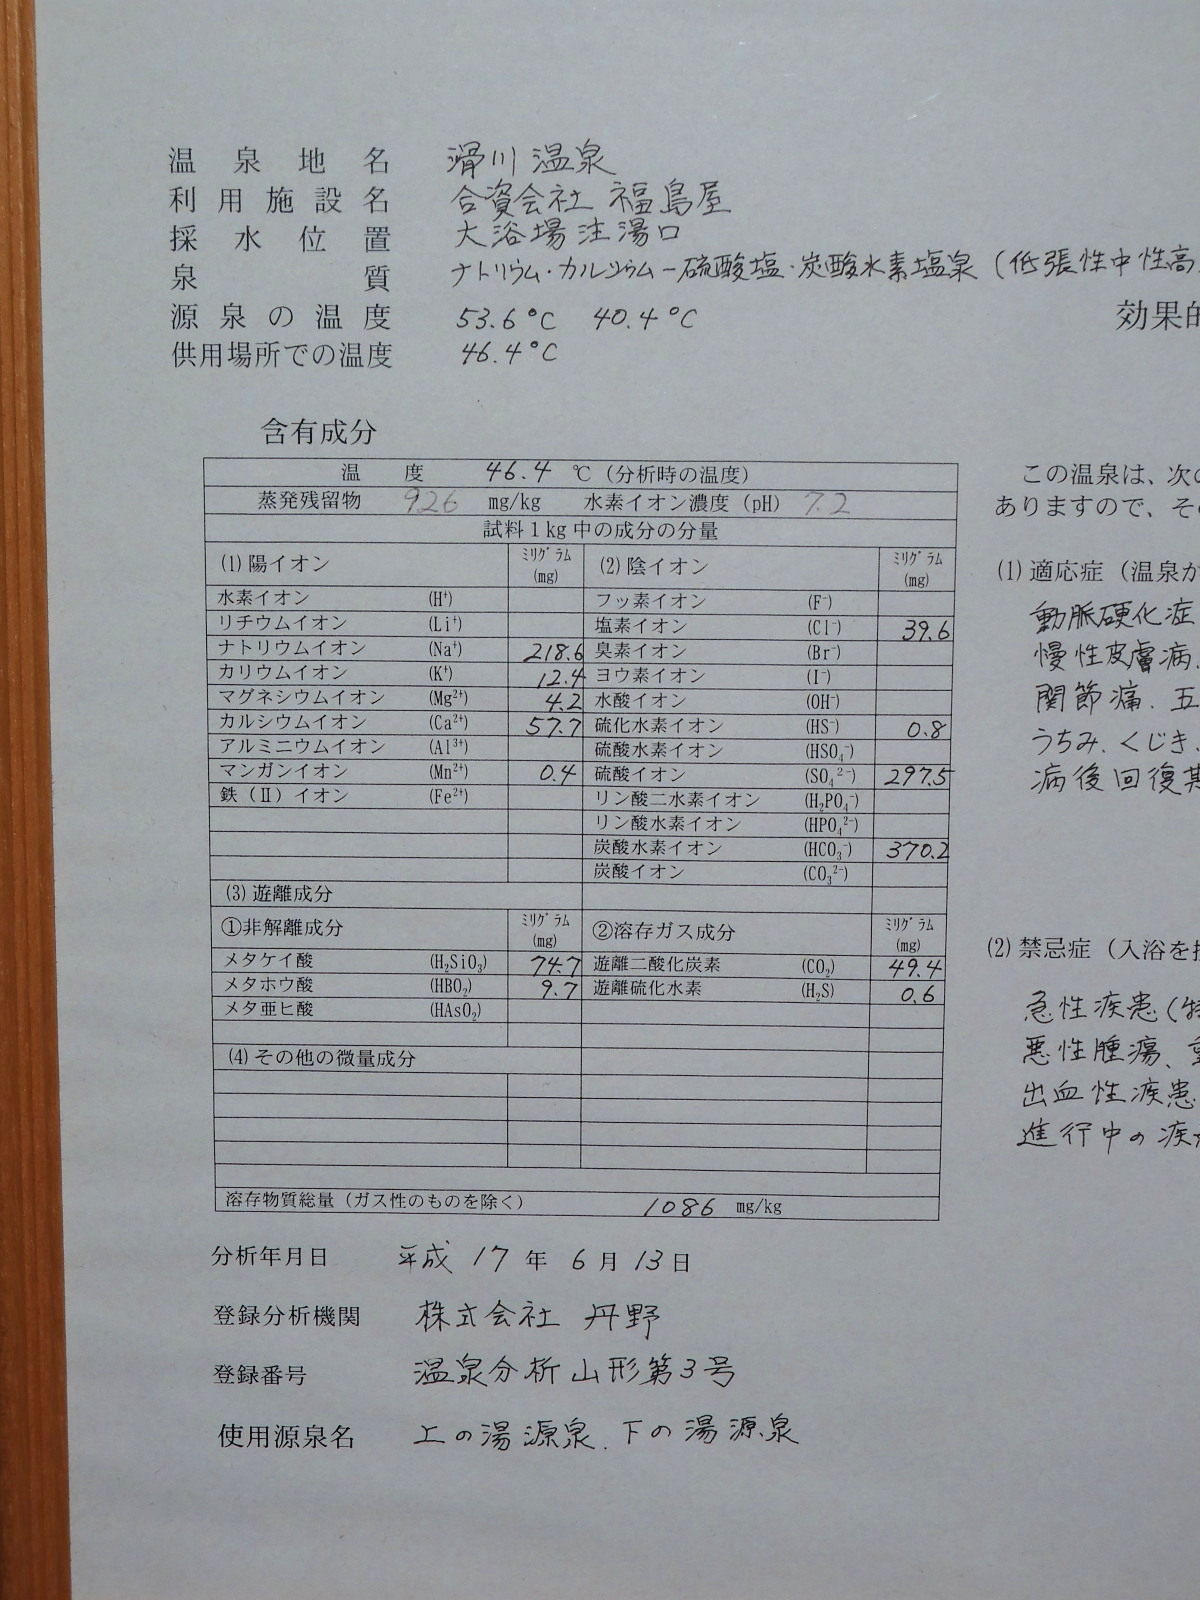 温泉地名 滑川温泉
利用施設名 合資会社 福島屋
採水位置 大浴場注湯口
泉質 ナトリウム・カルシウム-硫酸塩・炭酸水素塩泉(低張性中性高
源泉の温度 53.6℃ 40.4℃
効果的
供用場所での温度 46.4℃
含有成分
温度 46.4 ℃(分析時の温度)
蒸発残留物 926 mg/kg 水素イオン濃度(pH) 7.2
試料1kg中の成分の分量
(1)陽イオン ミリグラム(mg) (2)陰イオン ミリグラム(mg)
水素イオン (H⁺) フッ素イオン (F⁻)
リチウムイオン (Li⁺) 塩素イオン (Cl⁻) 39.6
ナトリウムイオン (Na⁺) 218.6 臭素イオン (Br⁻)
カリウムイオン (K⁺) 12.4 ヨウ素イオン (I⁻)
マグネシウムイオン (Mg²⁺) 4.2 水酸イオン (OH⁻)
カルシウムイオン (Ca²⁺) 57.7 硫化水素イオン (HS⁻) 0.8
アルミニウムイオン (Al³⁺) 硫酸水素イオン (HSO₄⁻)
マンガンイオン (Mn²⁺) 0.4 硫酸イオン (SO₄²⁻) 297.5
鉄(Ⅱ)イオン (Fe²⁺) リン酸二水素イオン (H₂PO₄⁻)
リン酸水素イオン (HPO₄²⁻)
炭酸水素イオン (HCO₃⁻) 370.2
炭酸イオン (CO₃²⁻)
(3)遊離成分
①非解離成分 ミリグラム(mg) ②溶存ガス成分 ミリグラム(mg)
メタケイ酸 (H₂SiO₃) 74.7 遊離二酸化炭素 (CO₂) 49.4
メタホウ酸 (HBO₂) 9.7 遊離硫化水素 (H₂S) 0.6
メタ亜ヒ酸 (HAsO₂)
(4)その他の微量成分
溶存物質総量(ガス性のものを除く) 1086 mg/kg
分析年月日 平成 17 年 6 月 13 日
登録分析機関 株式会社 丹野
登録番号 温泉分析山形第3号
使用源泉名 上の湯源泉、下の湯源泉
この温泉は、次の
ありますので、その
(1)適応症(温泉が
動脈硬化症
慢性皮膚病、
関節痛、五
うちみ、くじき、
病後回復期
(2)禁忌症(入浴を
急性疾患(特
悪性腫瘍、重
出血性疾患
進行中の疾